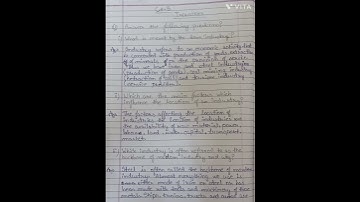 VITA
Industries
Q) Answer the following questions:
1. What is meant by the term 'industry'?
Ans: Industry refers to an economic activity that
is concerned with production of goods extraction
of minerals or the provision of services
Thus we have iron and steel industry
(production of goods), coal mining industry
(extraction of coal) and tourism industry
(service provider).
2. Which are the main factors which
influence the location of an industry?
Ans: The factors affecting the location of
industries are
the availability of raw material, land
water, labour, power, capital, transport,
market.
3. Which industry is often referred to as the
backbone of modern industry and why?
Ans: Steel is often called the backbone of modern
industry. Almost everything we use is
either made of iron or steel or has
been made with tools and machinery of these
metals. Ships, trains, trucks